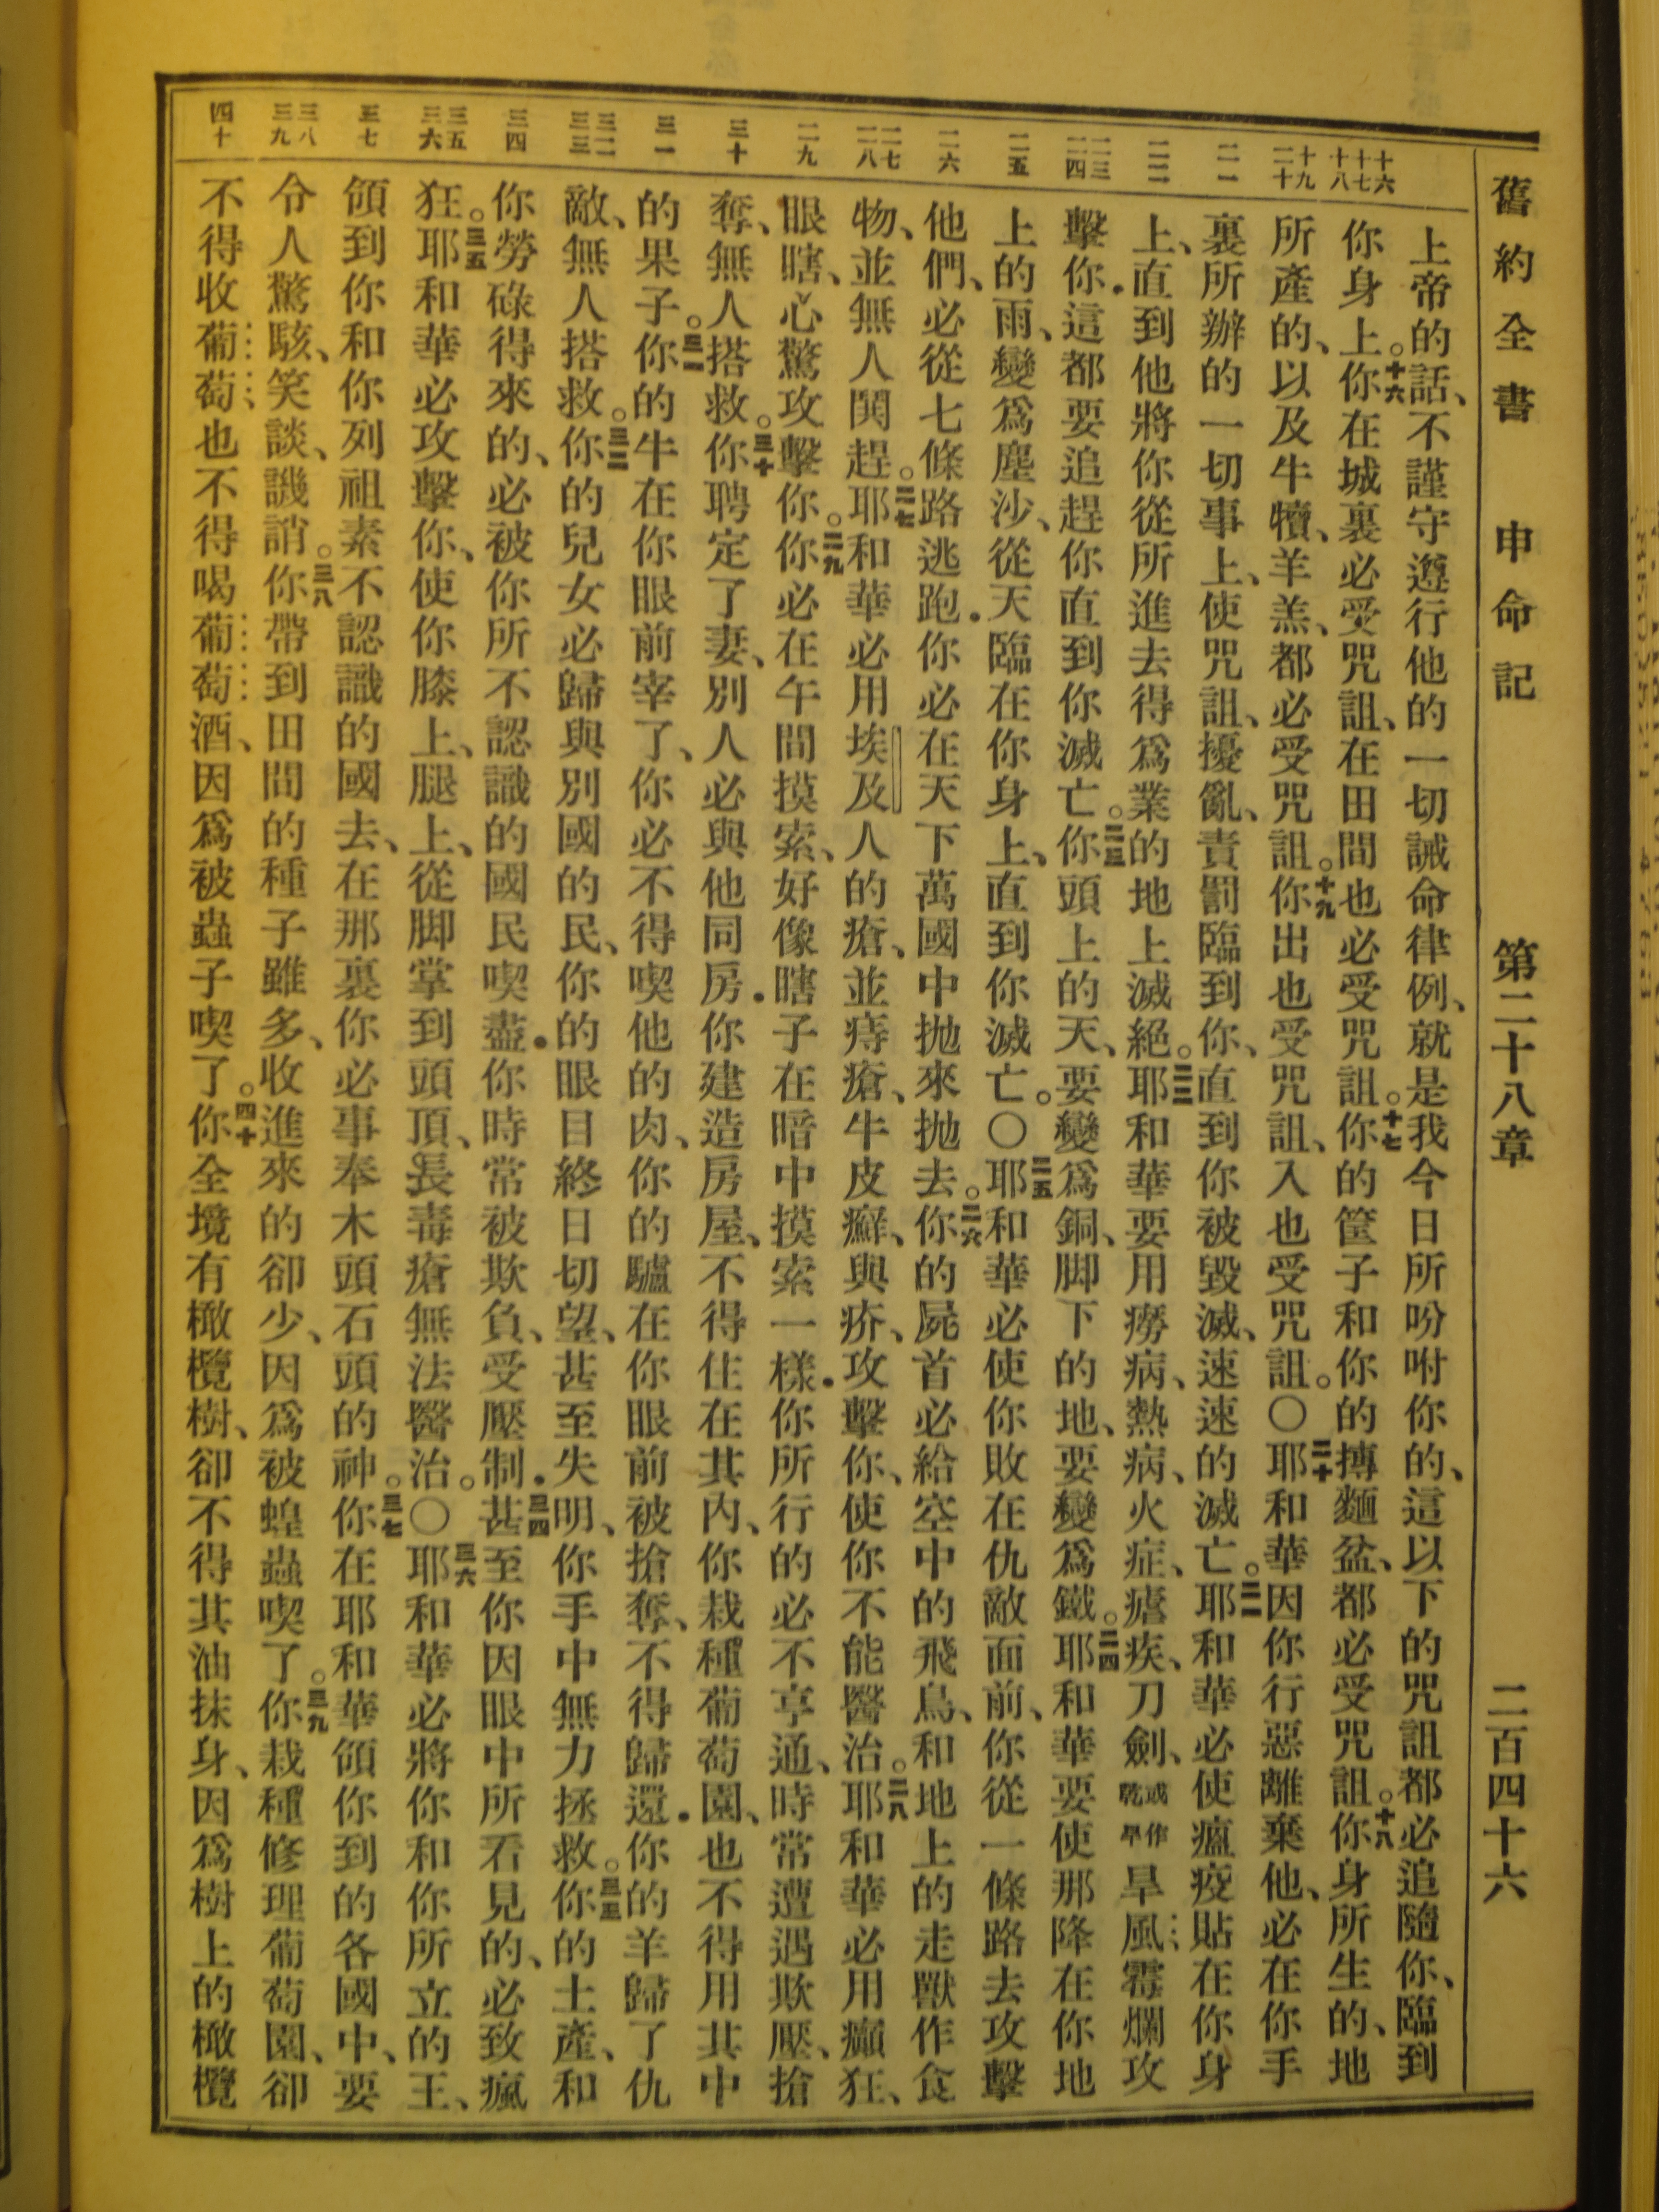 舊約全書 申命記 第二十八章 二百四十六
十六 十七 十八 十九 二十 二一 二二 二三 二四 二五 二六 二七 二八 二九 三十 三一 三二 三三 三四 三五 三六 三七 三八 三九 四十
上帝的話、不謹守遵行他的一切誡命律例、就是我今日所吩咐你的、這以下的咒詛都必追隨你、臨到
你身上。十六你在城裏必受咒詛、在田間也必受咒詛。十七你的筐子和你的摶麵盆、都必受咒詛。十八你身所生的、地
所產的、以及牛犢、羊羔、都必受咒詛。十九你出也受咒詛、入也受咒詛。〇二十耶和華因你行惡離棄他、必在你手
裏所辦的一切事上、使咒詛、擾亂、責罰臨到你、直到你被毀滅、速速的滅亡。二一耶和華必使瘟疫貼在你身
上、直到他將你從所進去得爲業的地上滅絕。二二耶和華要用癆病、熱病、火症、瘧疾、刀劍、或作乾旱旱風霉爛攻
擊你．這都要追趕你直到你滅亡。二三你頭上的天、要變爲銅、脚下的地、要變爲鐵。二四耶和華要使那降在你地
上的雨、變爲塵沙、從天臨在你身上、直到你滅亡。〇二五耶和華必使你敗在仇敵面前、你從一條路去攻擊
他們、必從七條路逃跑．你必在天下萬國中抛來抛去。二六你的屍首必給空中的飛鳥、和地上的走獸作食
物、並無人鬨趕。二七耶和華必用埃及人的瘡、並痔瘡、牛皮癬、與疥、攻擊你、使你不能醫治。二八耶和華必用癲狂、
眼瞎、心驚攻擊你。二九你必在午間摸索、好像瞎子在暗中摸索一樣．你所行的必不亨通、時常遭遇欺壓、搶
奪、無人搭救。三十你聘定了妻、別人必與他同房．你建造房屋、不得住在其內、你栽種葡萄園、也不得用其中
的果子。三一你的牛在你眼前宰了、你必不得喫他的肉、你的驢在你眼前被搶奪、不得歸還．你的羊歸了仇
敵、無人搭救。三二你的兒女必歸與別國的民、你的眼目終日切望、甚至失明、你手中無力拯救。三三你的土產、和
你勞碌得來的、必被你所不認識的國民喫盡．你時常被欺負、受壓制．三四甚至你因眼中所看見的、必致瘋
狂。三五耶和華必攻擊你、使你膝上、腿上、從脚掌到頭頂、長毒瘡無法醫治。〇三六耶和華必將你和你所立的王、
領到你和你列祖素不認識的國去、在那裏你必事奉木頭石頭的神。三七你在耶和華領你到的各國中、要
令人驚駭、笑談、譏誚。三八你帶到田間的種子雖多、收進來的卻少、因爲被蝗蟲喫了。三九你栽種修理葡萄園、卻
不得收葡萄也不得喝葡萄酒、因爲被蟲子喫了。四十你全境有橄欖樹、卻不得其油抹身、因爲樹上的橄欖